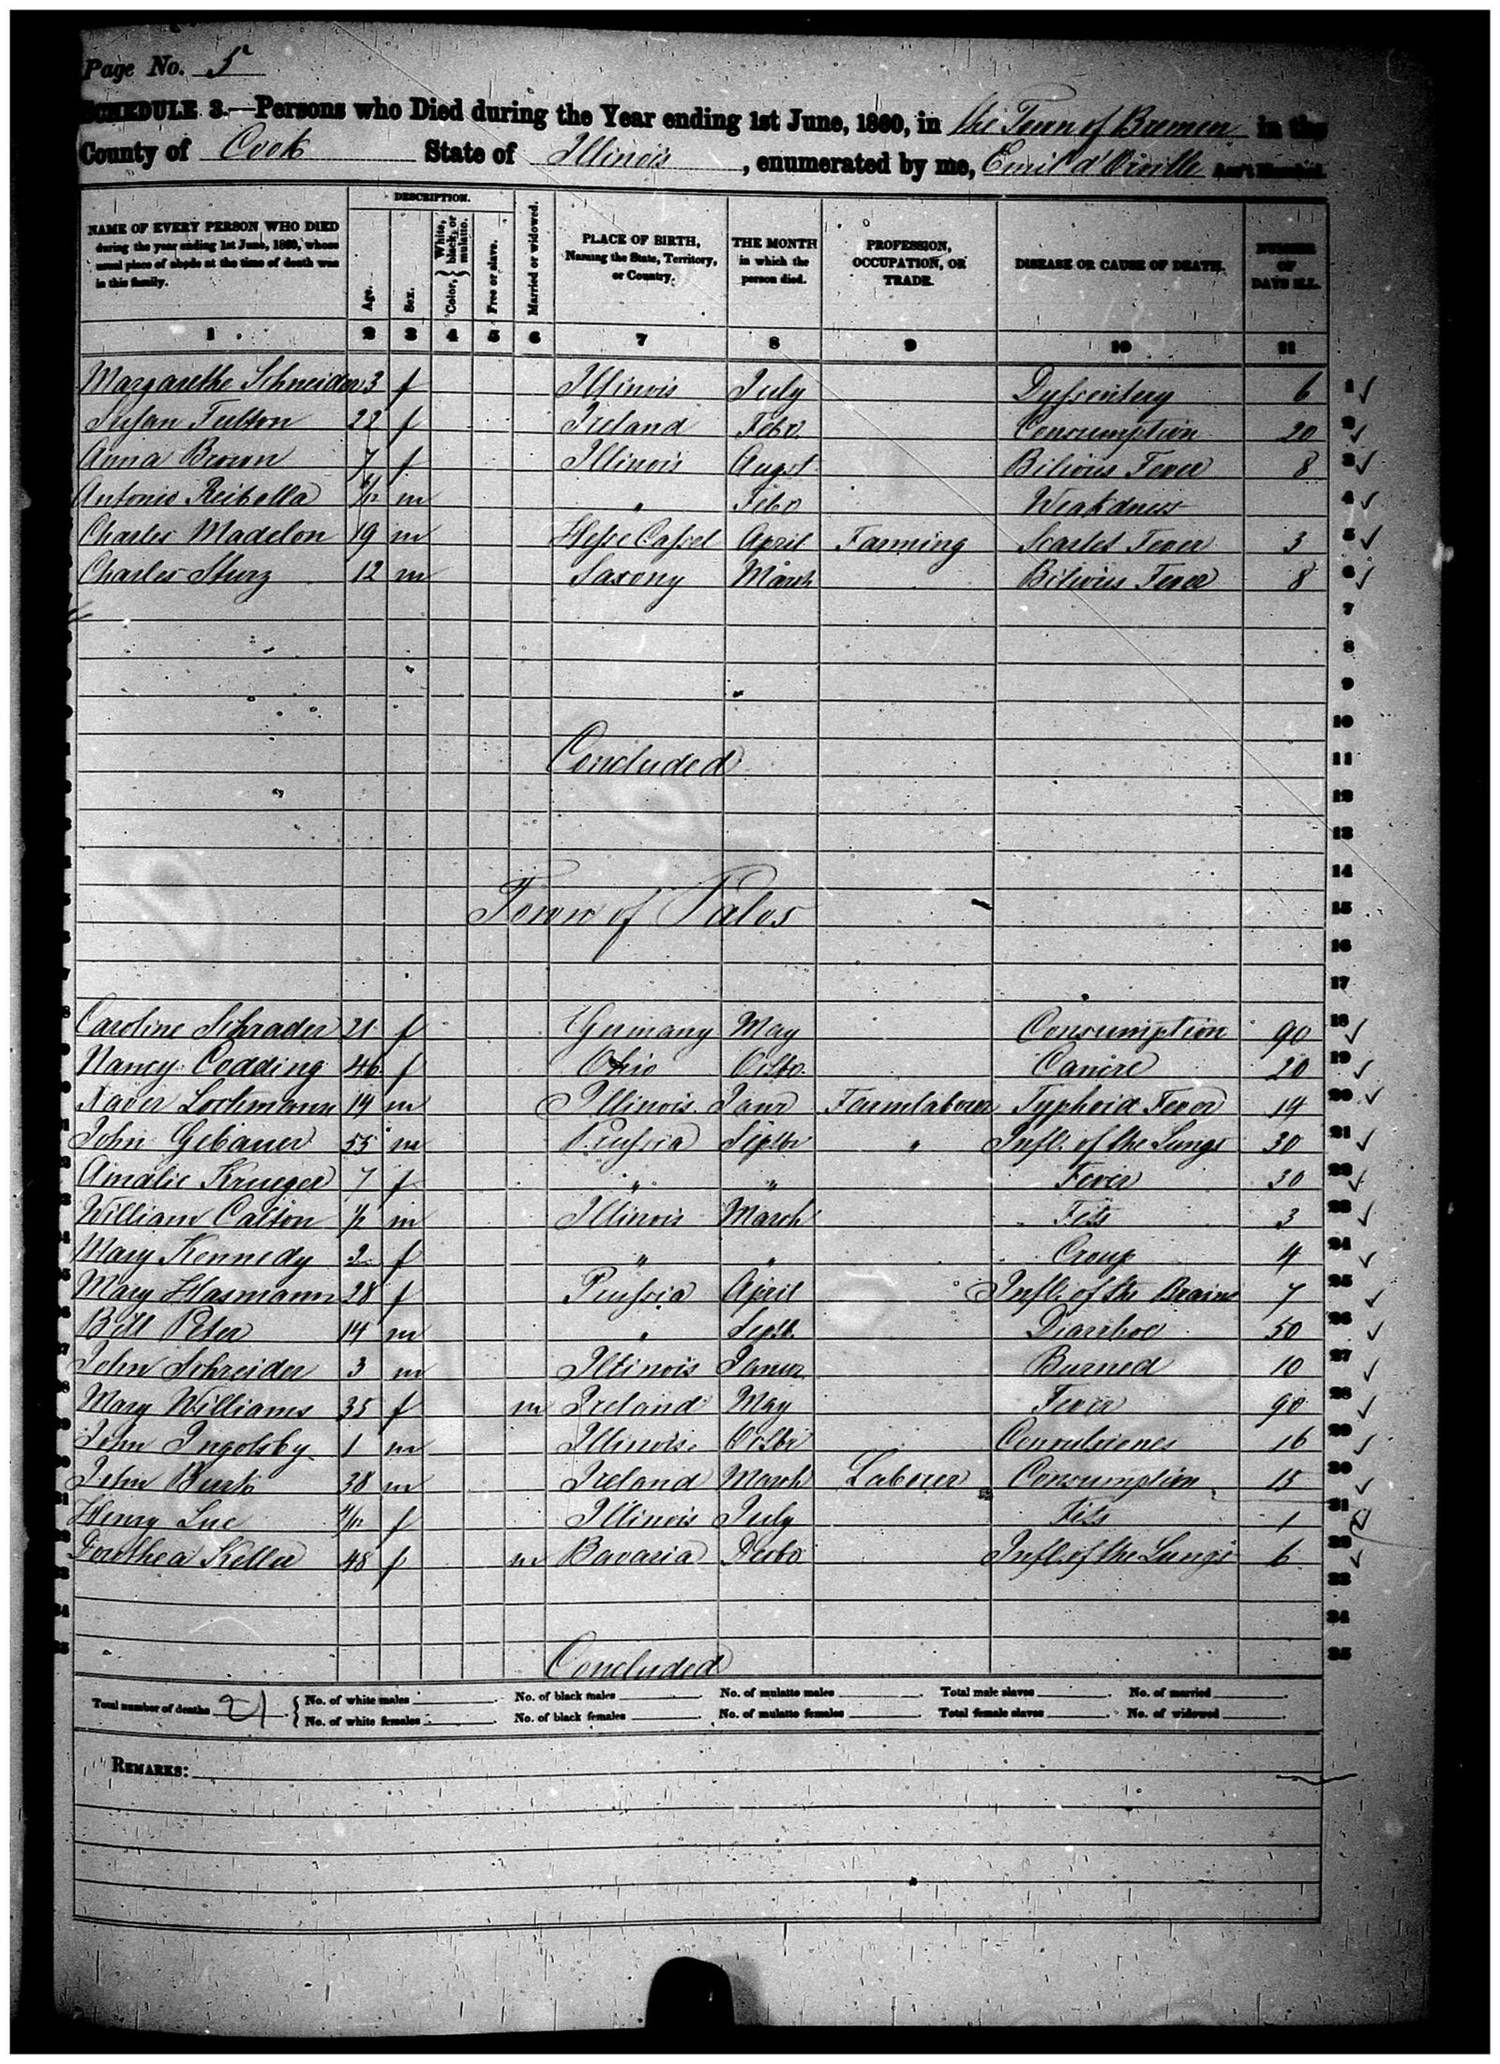 Page No. 5
SCHEDULE 3.—Persons who Died during the Year ending 1st June, 1860, in the Town of Bremen in the
County of Cook State of Illinois, enumerated by me, Emil d'Oiville Ass't Marshal.
NAME OF EVERY PERSON WHO DIED during the year ending 1st June, 1860, whose usual place of abode at the time of death was in this family.
DESCRIPTION.
Age.
Sex.
Color, { White, black, or mulatto.
Free or slave.
Married or widowed.
PLACE OF BIRTH, Naming the State, Territory, or Country.
THE MONTH in which the person died.
PROFESSION, OCCUPATION, OR TRADE.
DISEASE OR CAUSE OF DEATH.
NUMBER OF DAYS ILL.
1 2 3 4 5 6 7 8 9 10 11
Margarethe Schneider 3 f Illinois July Dyssentery 6 1
Susan Fulton 22 f Ireland Febo. Consumption 20 2
Anna Brown 7 f Illinois Augst Bilious Fever 8 3
Antonio Reibella /12 m " Febo Weakdness 4
Charles Madelon 19 m Hesse Cassel April Farming Scarlet Fever 3 5
Charles Sturz 12 m Saxony March Bilious Fever 8 6
7
8
9
10
Concluded 11
12
13
14
Town of Palos 15
16
17
Caroline Schrader 21 f Germany May Consumption 90 18
Nancy Codding 46 f Ohio Octbo. Cancre 20 19
Xaver Lochmann 19 m Illinois Janr Farmlaborer Typhoid Fever 14 20
John Gebauer 55 m Prussia Septbr " Infl. of the Lungs 30 21
Amalie Krueger 7 f " " Fever 30 22
William Calton 1/2 m Illinois March Fits 3 23
Mary Kennedy 2 f " " Croup 4 24
Mary Hasmann 28 f Prussia April Infl. of the Brains 7 25
Bill Peter 14 m " Septb. Diarrhoe 50 26
John Schreider 3 m Illinois Januar Burned 10 27
Mary Williams 35 f m Ireland May Fever 90 28
John Ingolsby 1 m Illinois. Octbr Convulsiones 16 29
John Burk 38 m Ireland March Laborer Consumption 15 30
Henry Luc 4/12 f Illinois July Fits 1 31
Dorothea Keller 48 f m Bavaria Decbo Infl. of the Lungs 6 32
33
34
Concluded 35
Total number of deaths 21 { No. of white males No. of black males No. of mulatto males Total male slaves No. of married
No. of white females No. of black females No. of mulatto females Total female slaves No. of widowed
REMARKS: